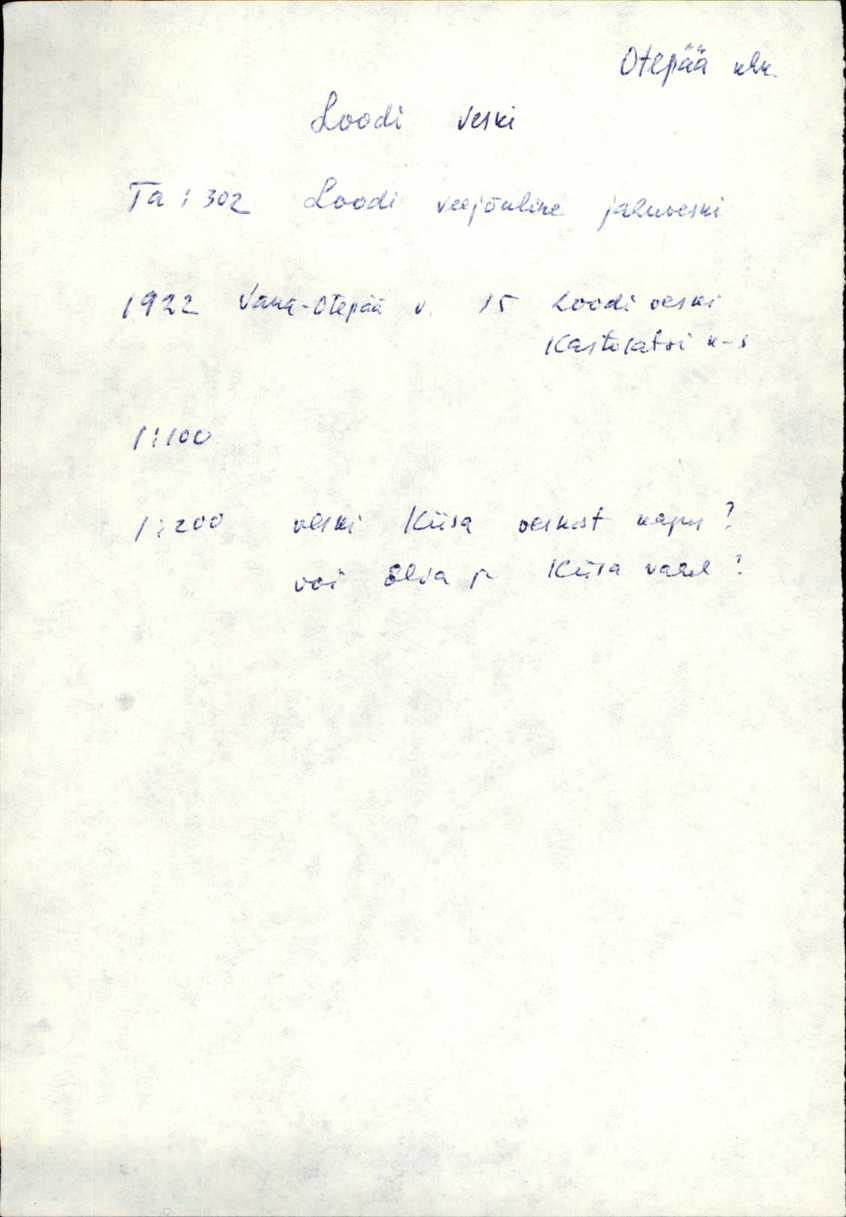 Otepää khk.
Loodi veski
Ta : 302 Loodi veejõuline jahuveski
1922 Vana-Otepää v. 15 Loodi veski
Kastolatsi k-s
1:100
1:200 veski Kiisa veskist kagus ?
või Elva ja Kiisa vahel ?